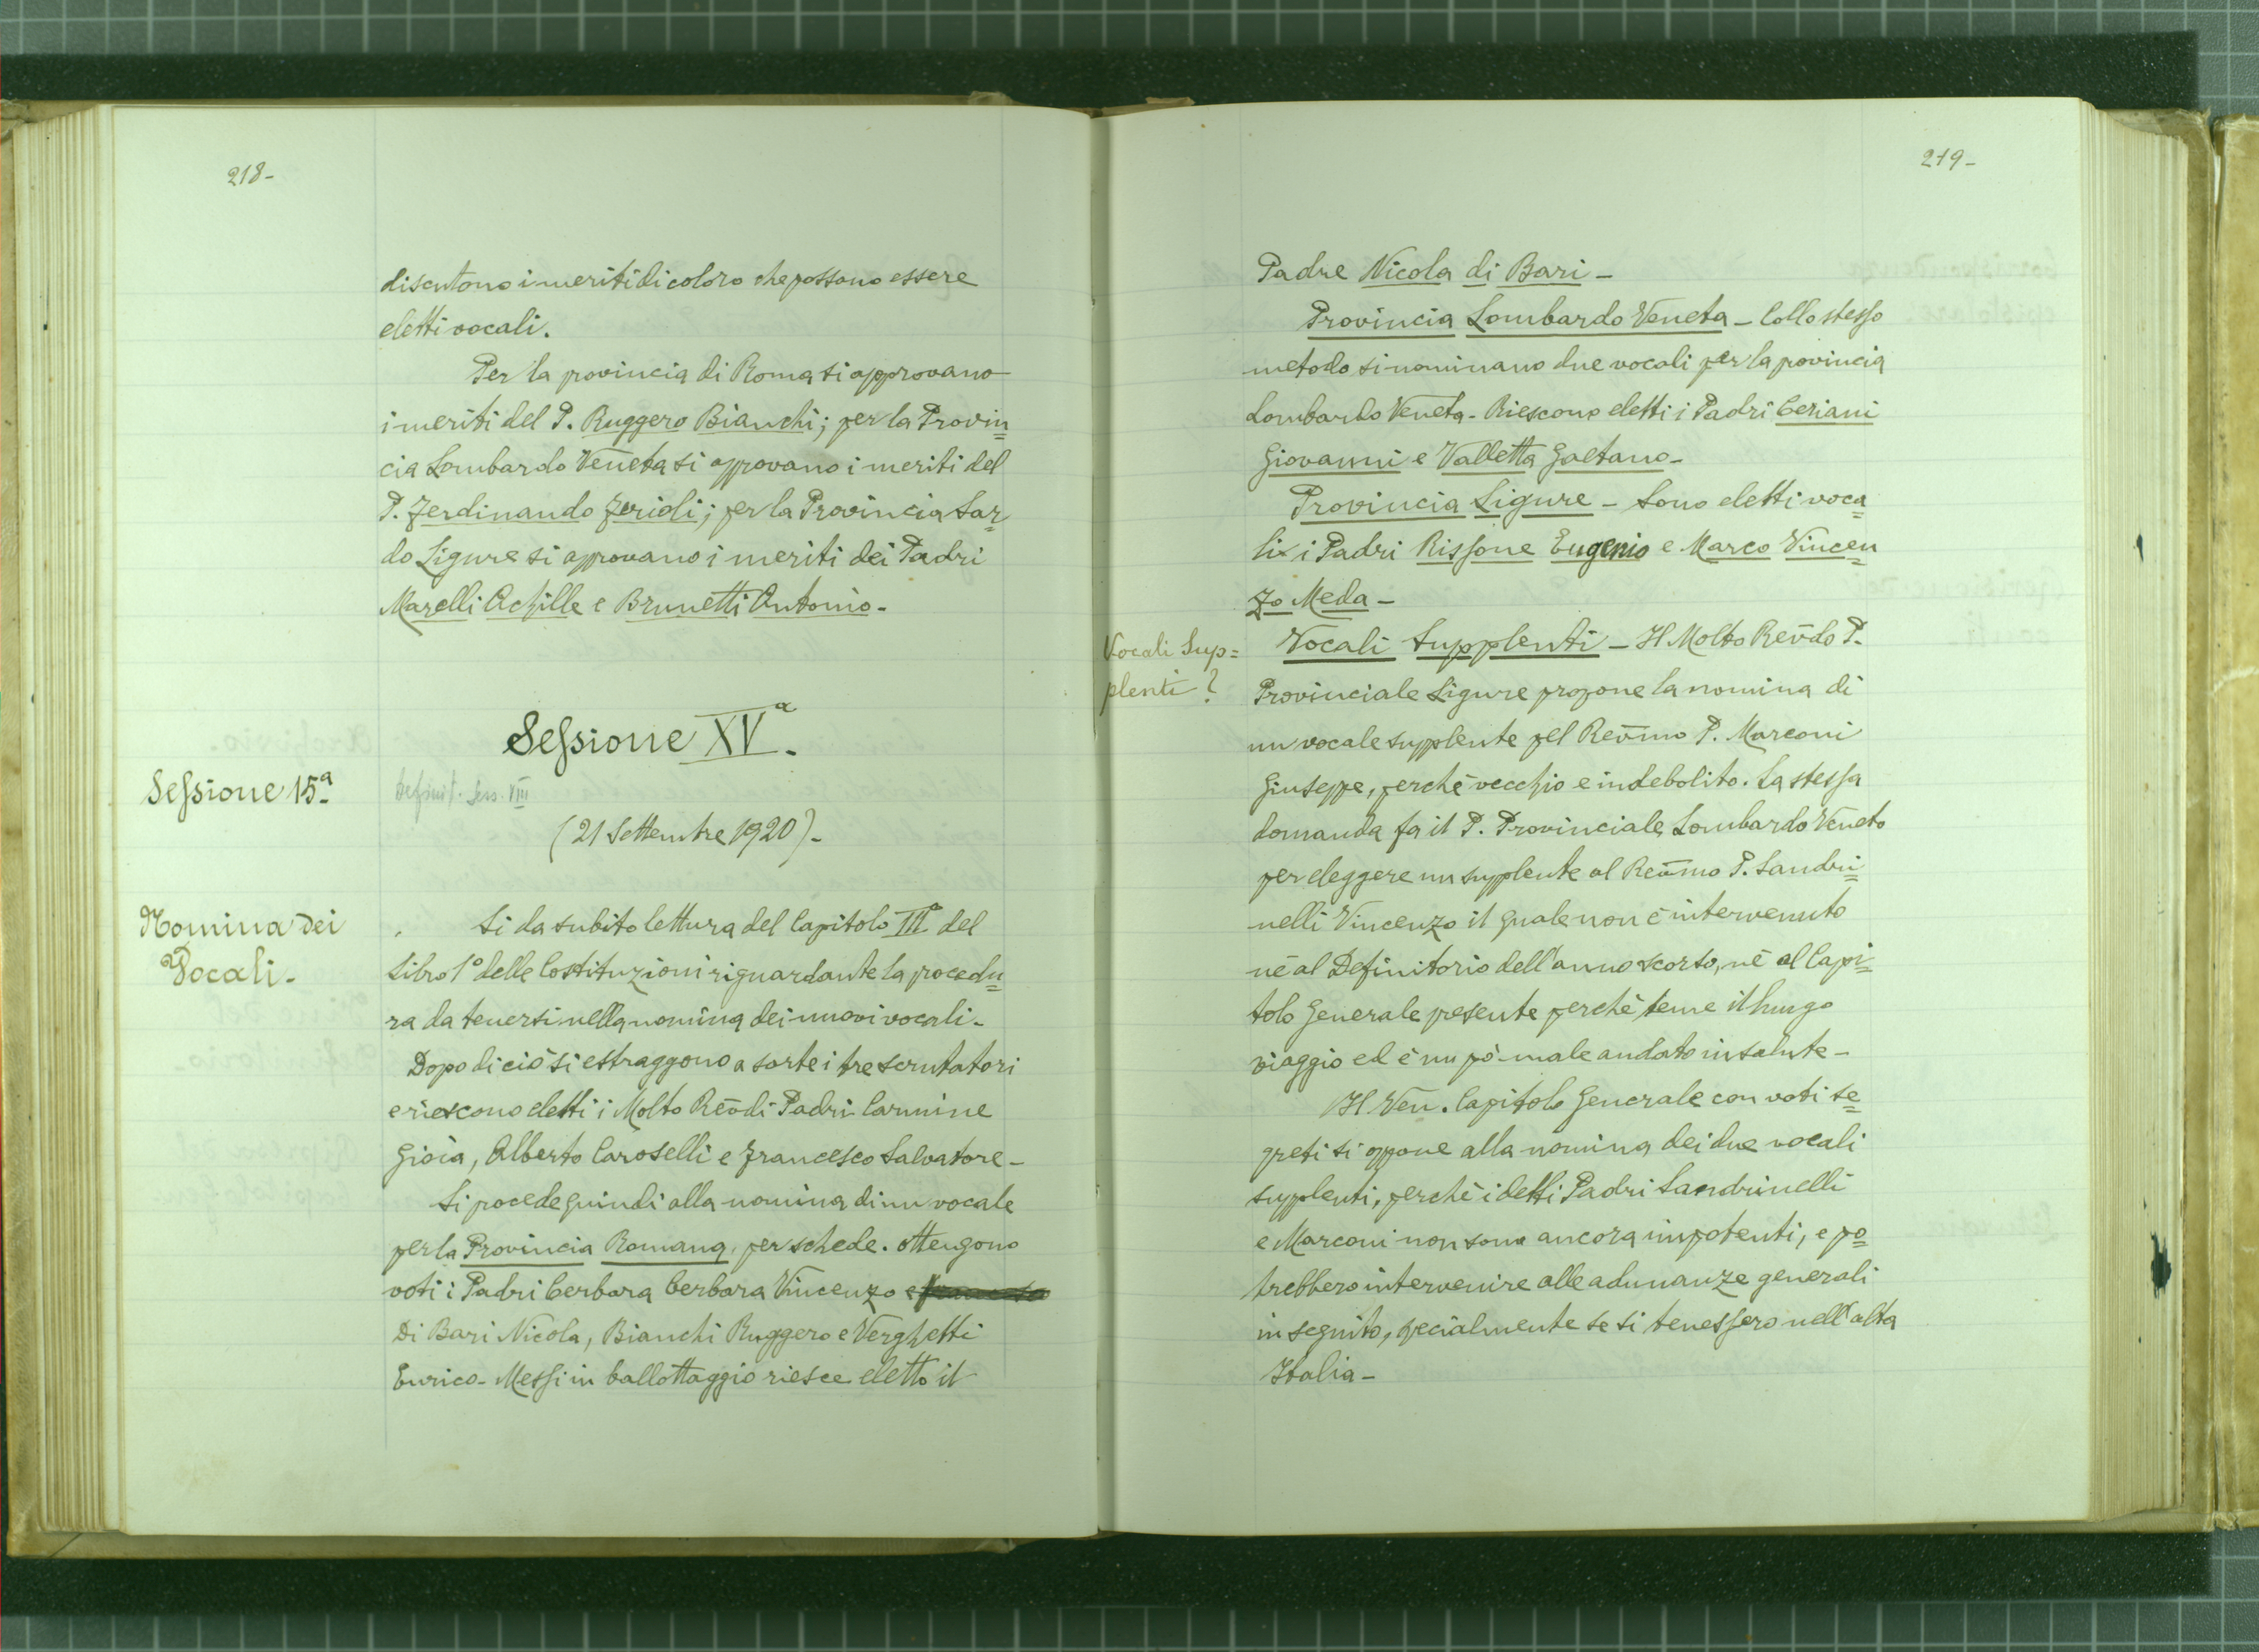 218-
discutono i meriti di coloro che possono essere
eletti vocali.
Per la provincia di Roma si approvano
i meriti del P. Ruggero Bianchi; per la Provin=
cia Lombardo Veneta si approvano i meriti del
P. Ferdinando Ferioli; per la Provincia Sar=
do Ligure si approvano i meriti dei Padri
Marelli Achille e Brunetti Antonio-
Sessione XVª.
Sessione 15ª
Definit. Sess. VIII
(21 Settembre 1920)-
Nomina dei
Vocali-
Si da subito lettura del Capitolo IIIº del
Libro 1º delle Costituzioni riguardante la procedu=
ra da tenersi nella nomina dei nuovi vocali-
Dopo di ciò si estraggono a sorte i tre scrutatori
e riescono eletti i Molto Rev̄di Padri Carmine
Gioia, Alberto Caroselli e Francesco Salvatore-
Si procede quindi alla nomina di un vocale
per la Provincia Romana, per schede. Ottengono
voti i Padri Cerbara Cerbara Vincenzo e
Di Bari Nicola, Bianchi Ruggero e Verghetti
Enrico- Messi in ballottaggio riesce eletto il
219-
Padre Nicola di Bari-
Provincia Lombardo Veneta- Collo stesso
metodo si nominano due vocali per la provincia
Lombardo Veneta- Riescono eletti i Padri Ceriani
Giovanni e Valletta Gaetano-
Provincia Ligure- Sono eletti voca=
li i Padri Rissone Eugenio e Marco Vincen=
zo Meda-
Vocali Sup=
plenti?
Vocali Supplenti- Il Molto Rev̄do P.
Provinciale Ligure propone la nomina di
un vocale supplente pel Rev̄mo P. Marconi
Giuseppe, perchè vecchio e indebolito. La stessa
domanda fa il P. Provinciale Lombardo Veneto
per eleggere un supplente al Rev̄mo P. Sandri=
nelli Vincenzo il quale non è intervenuto
nè al Definitorio dell'anno scorso, nè al Capi=
tolo Generale presente perchè teme il lungo
viaggio ed è un pò male andato in salute-
Il Ven. Capitolo Generale con voti se=
greti si oppone alla nomina dei due vocali
supplenti, perchè i detti Padri Sandrinelli
e Marconi non sono ancora impotenti, e po=
trebbero intervenire alle adunanze generali
in seguito, specialmente se si tenessero nell'alta
Italia-